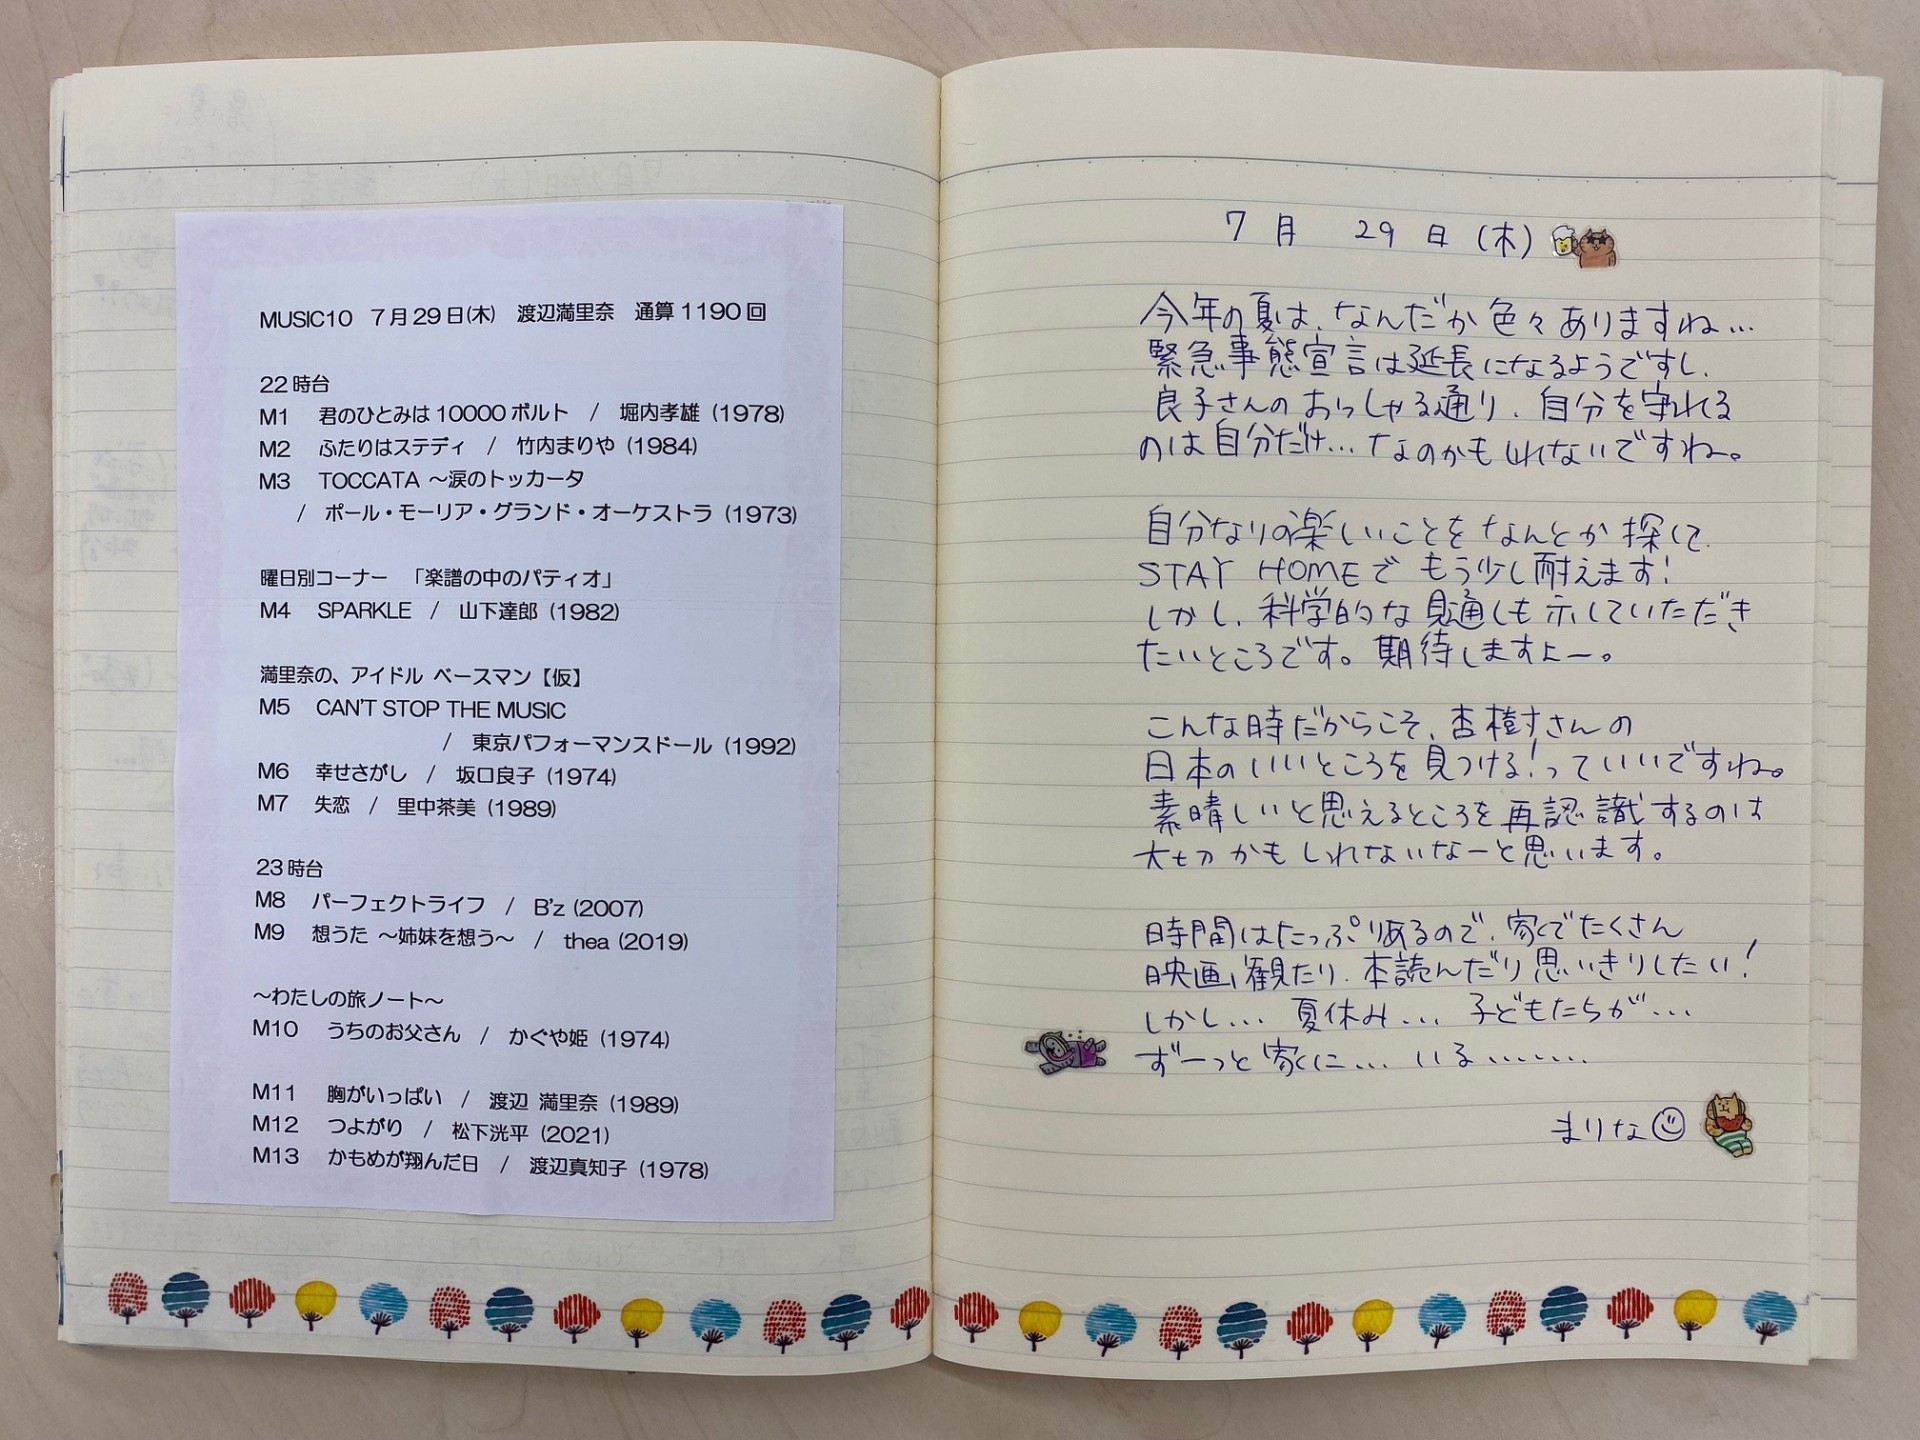 MUSIC10 7月29日(木) 渡辺満里奈 通算1190回
22時台
M1 君のひとみは10000ボルト / 堀内孝雄 (1978)
M2 ふたりはステディ / 竹内まりや (1984)
M3 TOCCATA ～涙のトッカータ
/ ポール・モーリア・グランド・オーケストラ (1973)
曜日別コーナー 「楽譜の中のパティオ」
M4 SPARKLE / 山下達郎 (1982)
満里奈の、アイドル ベースマン【仮】
M5 CAN'T STOP THE MUSIC
/ 東京パフォーマンスドール (1992)
M6 幸せさがし / 坂口良子 (1974)
M7 失恋 / 里中茶美 (1989)
23時台
M8 パーフェクトライフ / B'z (2007)
M9 想うた ～姉妹を想う～ / thea (2019)
～わたしの旅ノート～
M10 うちのお父さん / かぐや姫 (1974)
M11 胸がいっぱい / 渡辺 満里奈 (1989)
M12 つよがり / 松下洸平 (2021)
M13 かもめが翔んだ日 / 渡辺真知子 (1978)
7月 29日 (木)
今年の夏は、なんだか色々ありますね…
緊急事態宣言は延長になるようですし、
良子さんのおっしゃる通り、自分を守れる
のは自分だけ…なのかもしれないですね。
自分なりの楽しいことをなんとか探して、
STAY HOMEで もう少し耐えます!
しかし、科学的な見通しも示していただき
たいところです。期待しますよー。
こんな時だからこそ、杏樹さんの
日本のいいところを見つける!っていいですね。
素晴しいと思えるところを再認識するのは
大切かもしれないなーと思います。
時間はたっぷりあるので、家でたくさん
映画観たり、本読んだり思いきりしたい!
しかし… 夏休み… 子どもたちが…
ずーっと家に… いる……
まりな